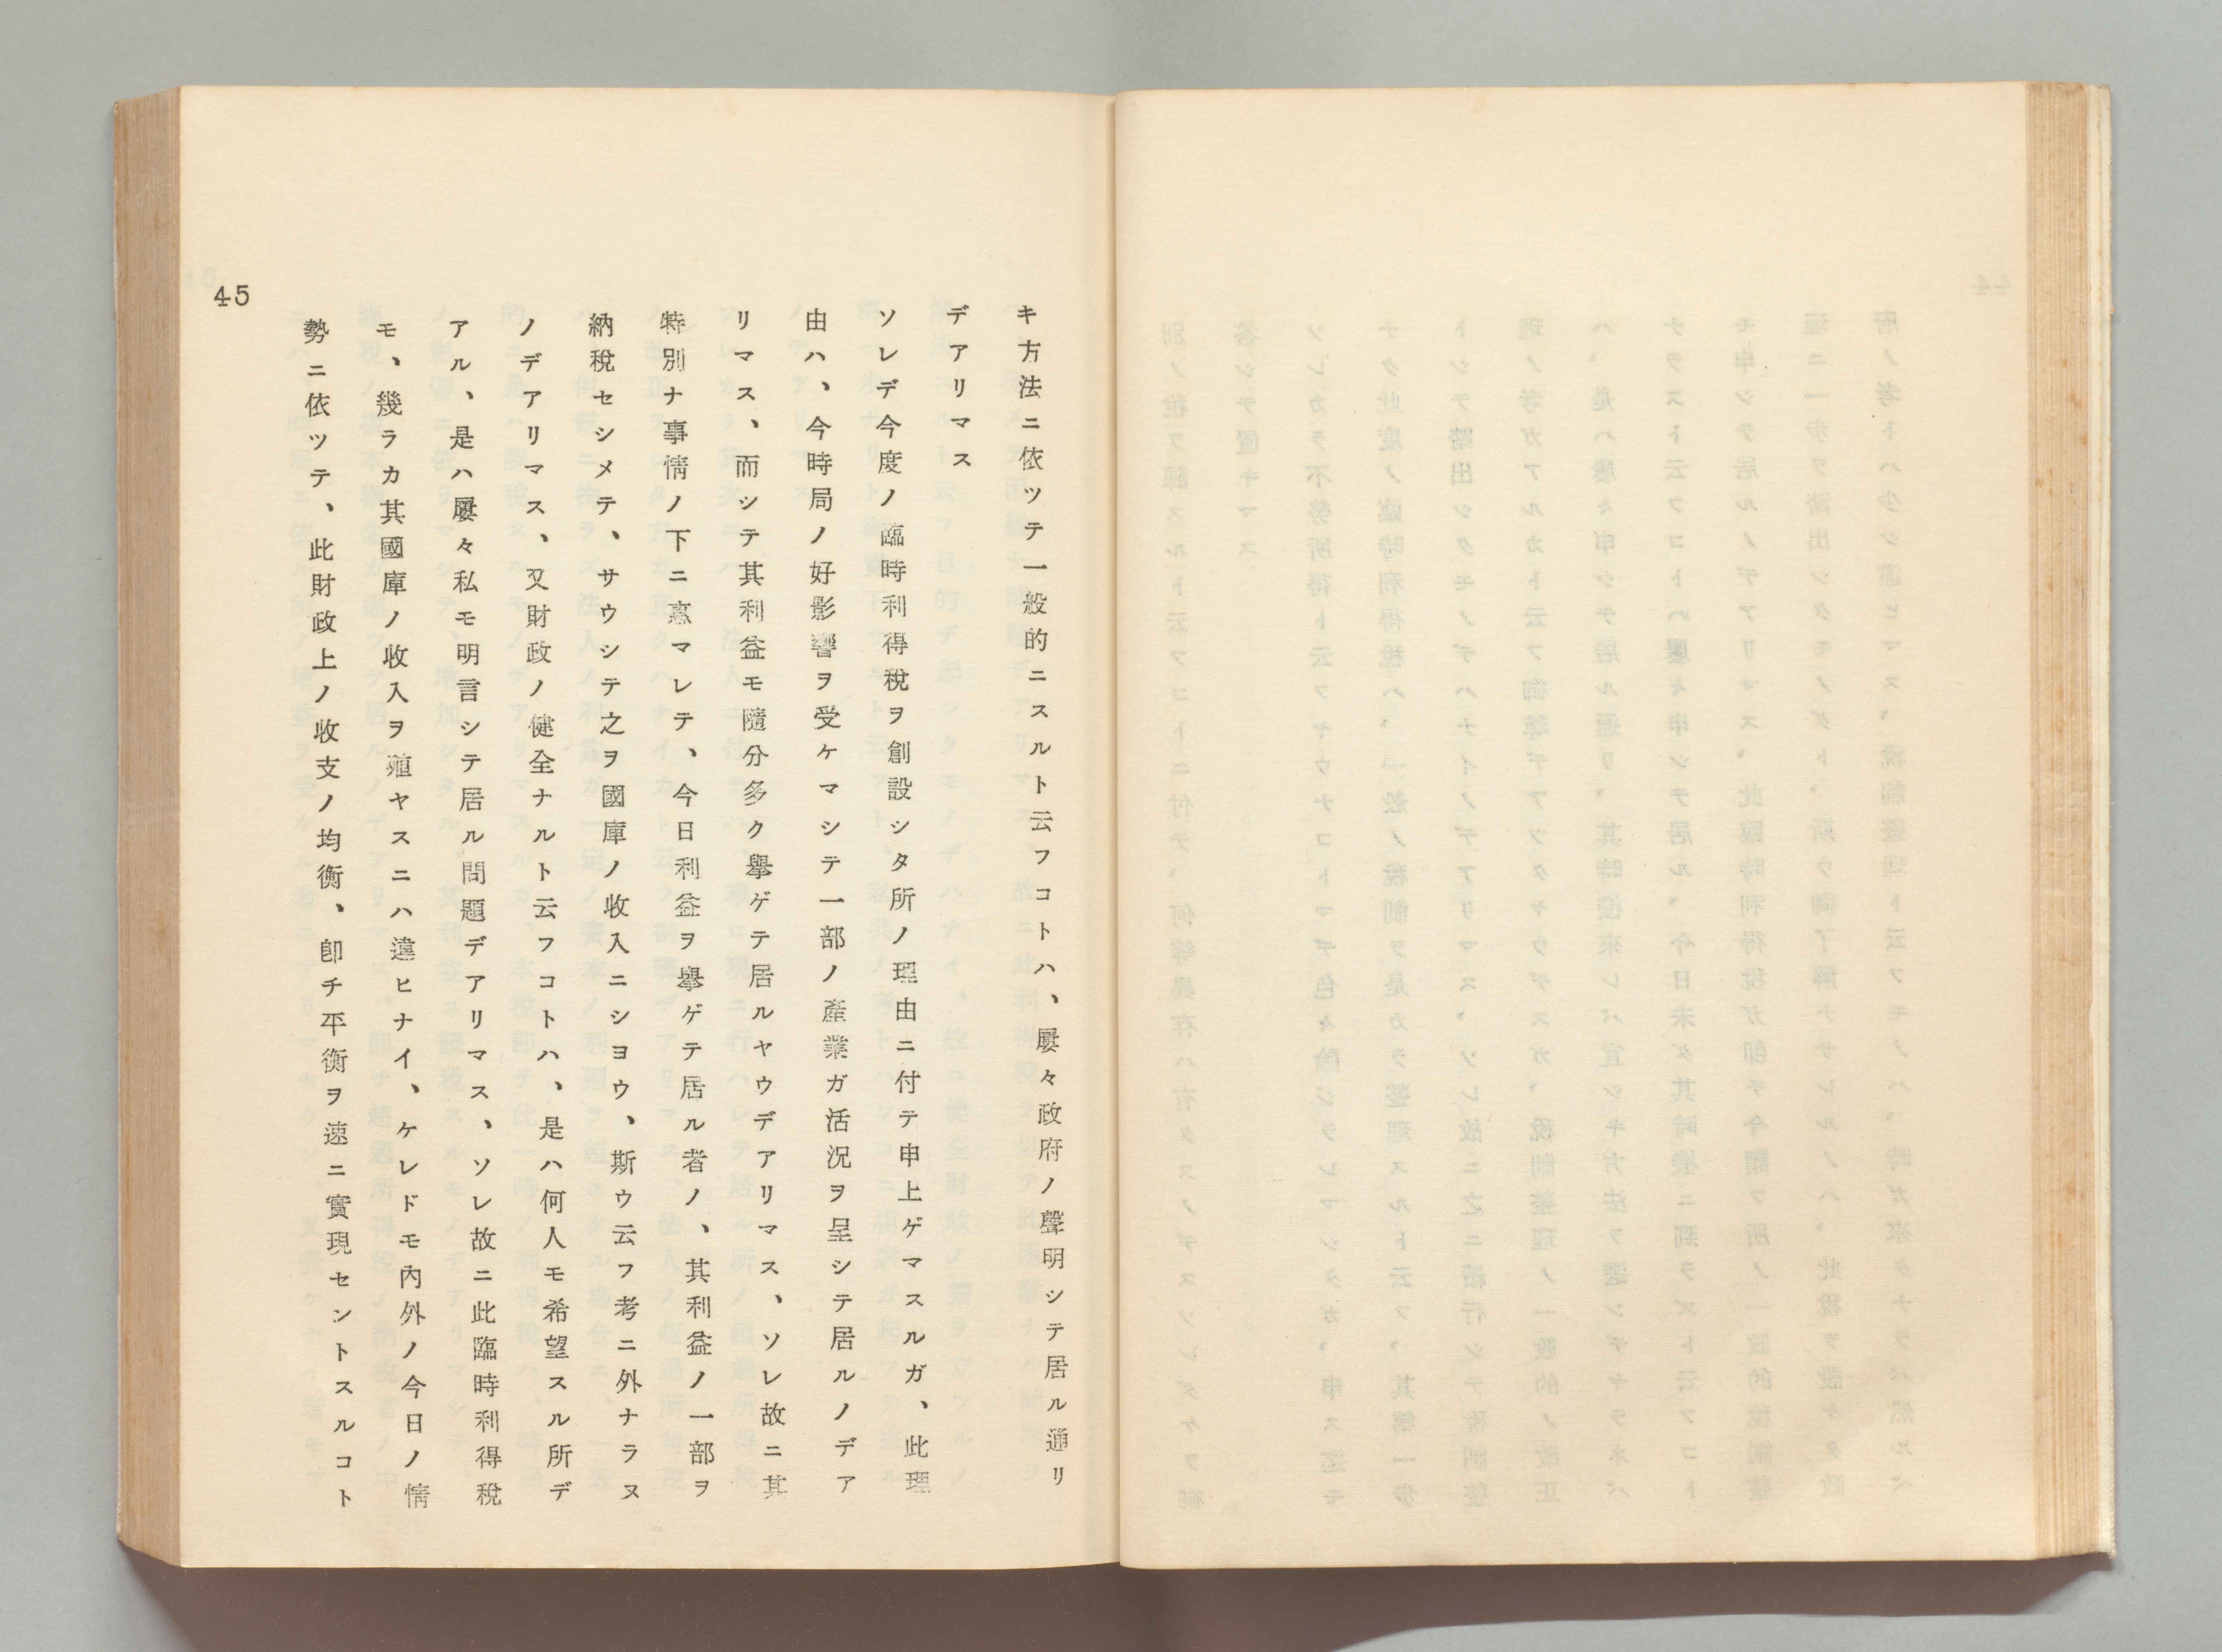 キ方法ニ依ツテ一般的ニスルト云フコトハ、屢々政府ノ聲明シテ居ル通リ
デアリマス
ソレデ今度ノ臨時利得稅ヲ創設シタ所ノ理由ニ付テ申上ゲマスルガ、此理
由ハ、今時局ノ好影響ヲ受ケマシテ一部ノ產業ガ活況ヲ呈シテ居ルノデア
リマス、而シテ其利益モ隨分多ク擧ゲテ居ルヤウデアリマス、ソレ故ニ其
特別ナ事情ノ下ニ惠マレテ、今日利益ヲ擧ゲテ居ル者ノ、其利益ノ一部ヲ
納稅セシメテ、サウシテ之ヲ國庫ノ收入ニシヨウ、斯ウ云フ考ニ外ナラヌ
ノデアリマス、又財政ノ健全ナルト云フコトハ、是ハ何人モ希望スル所デ
アル、是ハ屢々私モ明言シテ居ル問題デアリマス、ソレ故ニ此臨時利得稅
モ、幾ラカ其國庫ノ收入ヲ殖ヤスニハ違ヒナイ、ケレドモ內外ノ今日ノ情
勢ニ依ツテ、此財政上ノ收支ノ均衡、卽チ平衡ヲ速ニ實現セントスルコト
45